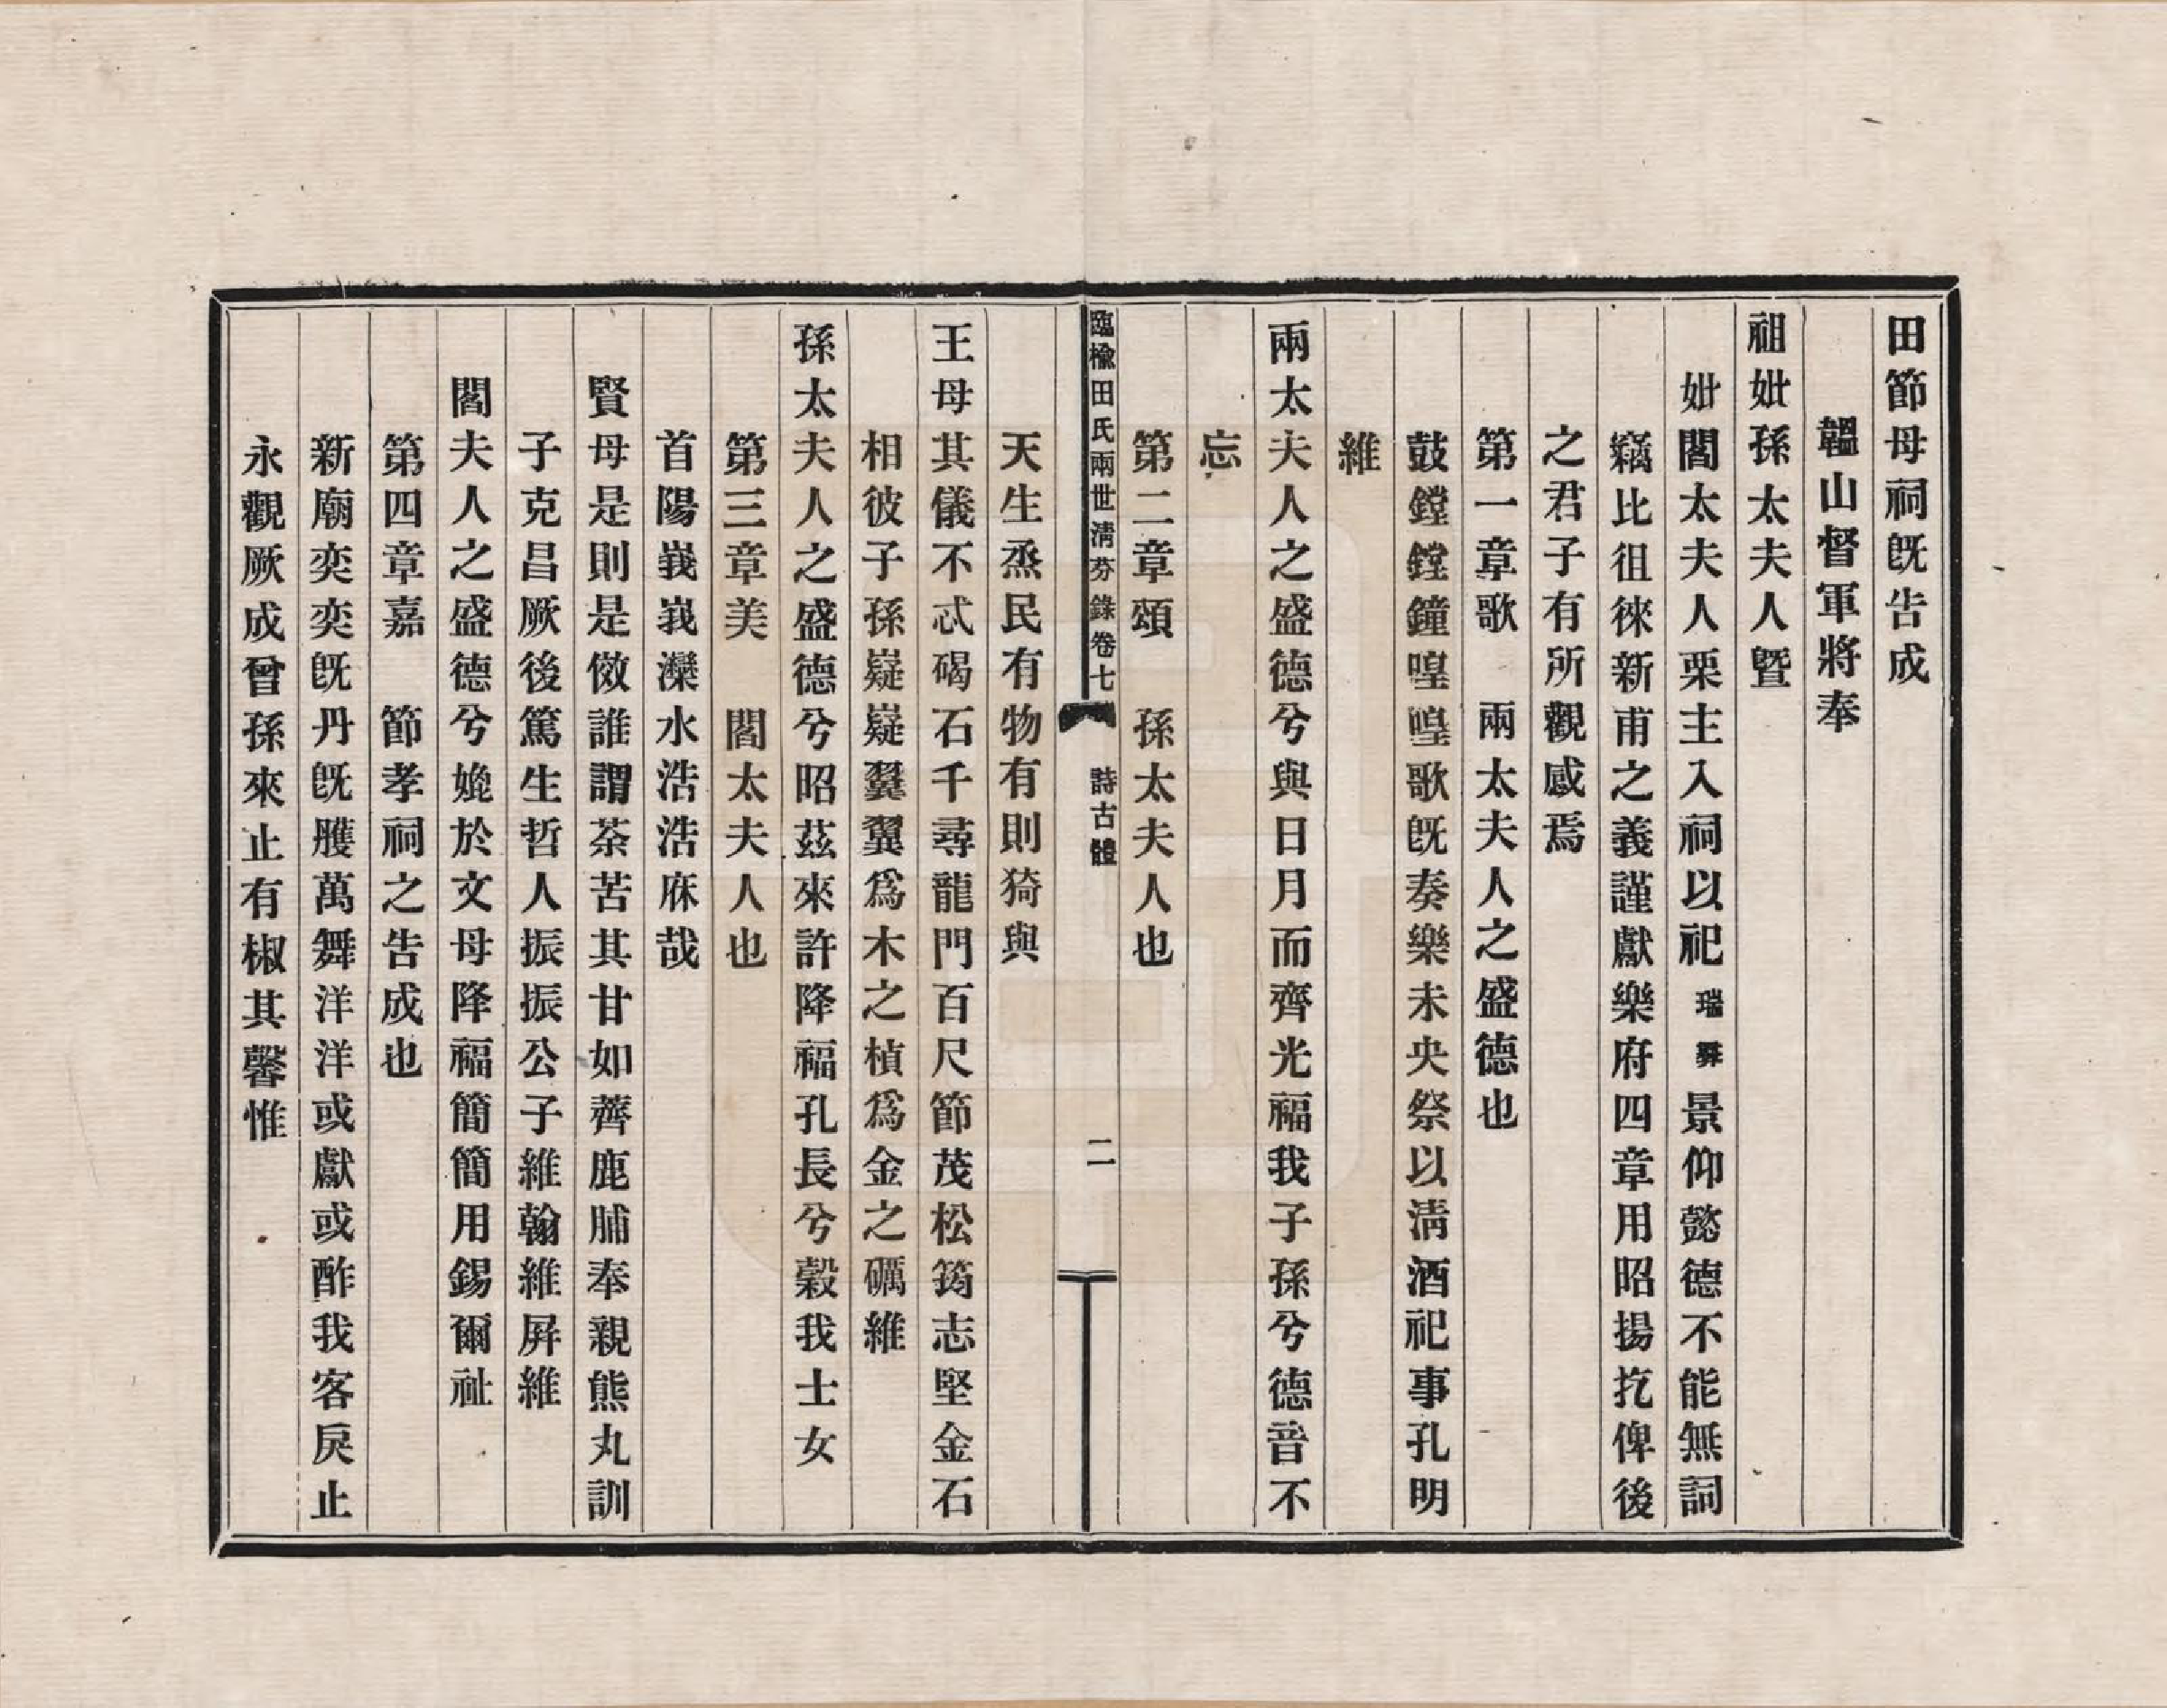 田節母祠旣告成
韞山督軍將奉
祖妣孫太夫人曁
妣閻太夫人栗主入祠以祀瑞彝景仰懿德不能無詞
竊比徂徠新甫之義謹獻樂府四章用昭揚扢俾後
之君子有所觀感焉
第一章歌　兩太夫人之盛德也
鼓鏜鏜鐘喤喤歌旣奏樂未央祭以淸酒祀事孔明
維
兩太夫人之盛德兮與日月而齊光福我子孫兮德音不
忘
第二章頌　孫太夫人也
臨楡田氏兩世淸芬錄卷七　詩古體　二
天生烝民有物有則猗與
王母其儀不忒碣石千尋龍門百尺節茂松筠志堅金石
相彼子孫嶷嶷翼翼爲木之楨爲金之礪維
孫太夫人之盛德兮昭茲來許降福孔長兮穀我士女
第三章美　閻太夫人也
首陽峩峩灤水浩浩庥哉
賢母是則是傚誰謂荼苦其甘如薺鹿脯奉親熊丸訓
子克昌厥後篤生哲人振振公子維翰維屏維
閻夫人之盛德兮媲於文母降福簡簡用錫爾祉
第四章嘉　節孝祠之告成也
新廟奕奕旣丹旣雘萬舞洋洋或獻或酢我客戾止
永觀厥成曾孫來止有椒其馨惟